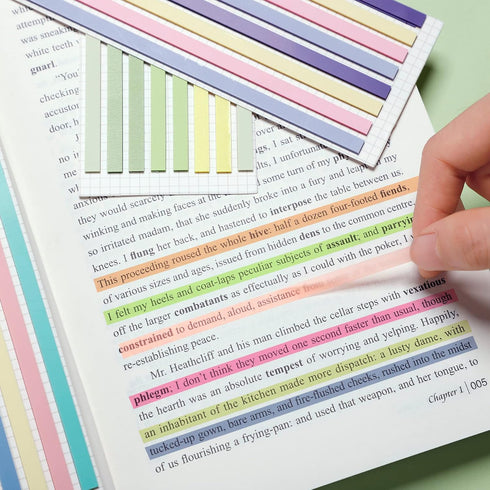 attempt
was sneakin
white teeth
gnarl.
"You'
checking
accustor
door,
no i
in
anxious
they would scarcely
winking and making faces at the
so irritated madam, that she suddenly broke into a fury and leapt on my
knees. I flung her back, and hastened to interpose the table between us.
This proceeding roused the whole hive: half a dozen four-footed fiends,
of various sizes and ages, issued from hidden dens to the common centre.
I felt my heels and coat-laps peculiar subjects of assault; and parrying
off the larger combatants as effectually as I could with the poker, I w
constrained to demand, aloud, assistance from
re-establishing peace.
Mr. Heathcliff and his man climbed the cellar steps with vexatious
phlegm: I don't think they moved one second faster than usual, though
the hearth was an absolute tempest of worrying and yelping. Happily,
an inhabitant of the kitchen made more dispatch: a lusty dame, with
tucked-up gown, bare arms, and fire-flushed cheeks, rushed into the midst
of us flourishing a frying-pan: and used that weapon, and her tongue, to
Chapter 1 | 005